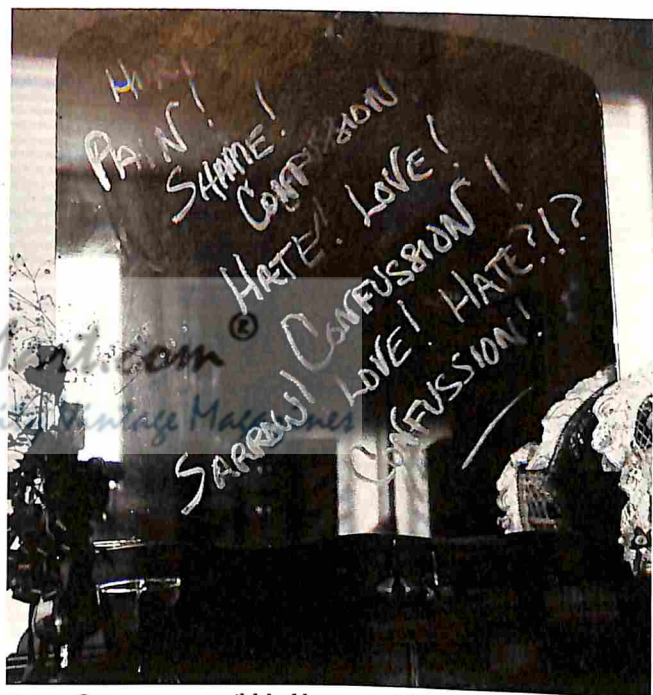 PAIN!
SHAME!
CONFUSSION
HATE! LOVE!
CONFUSSION!
SARROW! LOVE! HATE?!?
CONFUSSION!
art.com®
Vintage Magazines